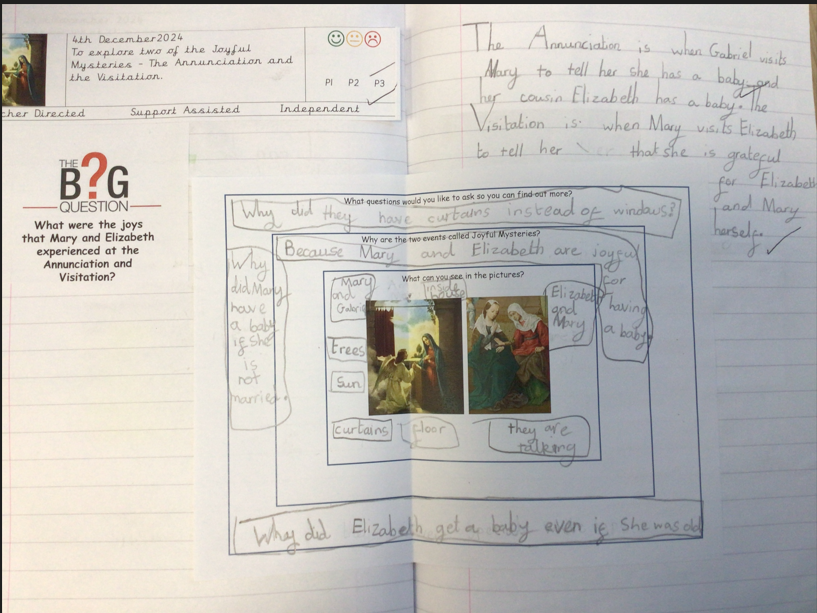 4th December 2024
To explore two of the Joyful
Mysteries - The Annunciation and
the Visitation.
P1 P2 P3
cher Directed Support Assisted Independent
THE
B?G
QUESTION
What were the joys
that Mary and Elizabeth
experienced at the
Annunciation and
Visitation?
The Annunciation is when Gabriel visits
Mary to tell her she has a baby and
her cousin Elizabeth has a baby. The
Visitation is when Mary visits Elizabeth
to tell her that she is grateful
for Elizabeth
and Mary
herself.
What questions would you like to ask so you can find out more?
Why did they have curtains instead of windows?
Why did Mary
have
a baby
if she
is
not
married.
Why are the two events called Joyful Mysteries?
Because Mary and Elizabeth are joyful
for
having
a baby
What can you see in the pictures?
Mary
and
Gabriel
inside
house
Elizabeth
and
Mary
trees
Sun
curtains
floor
they are
talking
Why did Elizabeth get a baby even if She was old